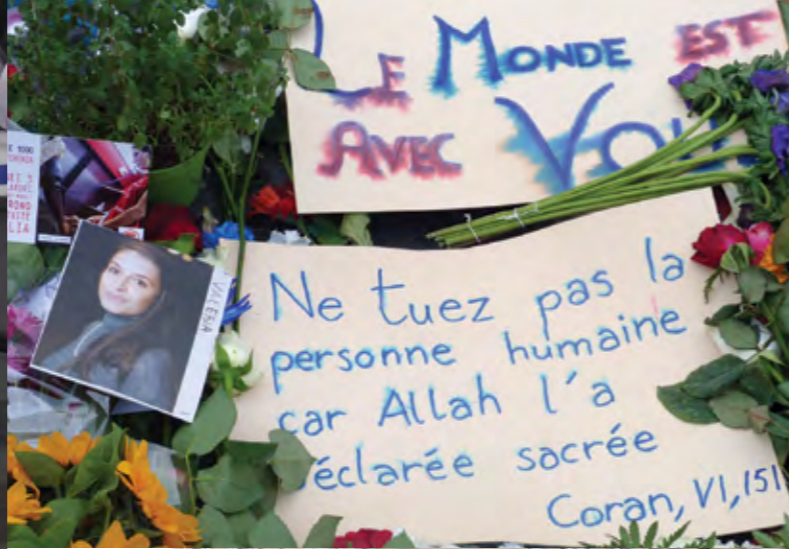 LE MONDE EST
AVEC VOUS
VALERIA
Ne tuez pas la
personne humaine
car Allah l'a
déclarée sacrée
Coran, VI, 151